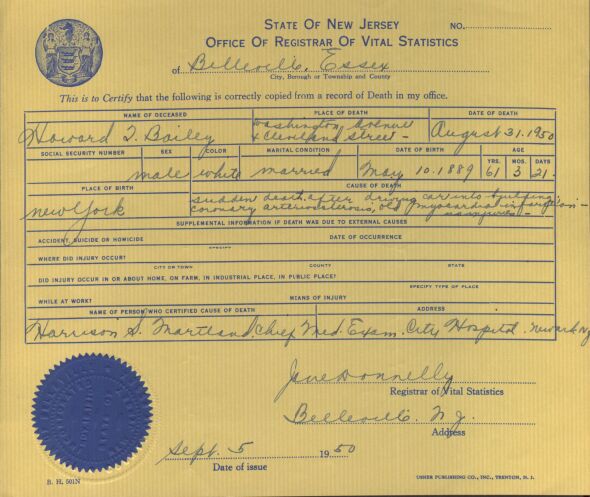 STATE OF NEW JERSEY
NO.
OFFICE OF REGISTRAR OF VITAL STATISTICS
of Belleville, Essex
City, Borough or Township and County
This is to Certify that the following is correctly copied from a record of Death in my office.
NAME OF DECEASED PLACE OF DEATH DATE OF DEATH
Howard T. Bailey Washington Avenue & Cleveland Street - August 31. 1950
SOCIAL SECURITY NUMBER SEX COLOR MARITAL CONDITION DATE OF BIRTH AGE
YRS. MOS. DAYS
male white married May 10. 1889 61 3 21
PLACE OF BIRTH CAUSE OF DEATH
new York sudden death after driving car into building
coronary arteriosclerosis, old myocardial infarction -
no injuries -
SUPPLEMENTAL INFORMATION IF DEATH WAS DUE TO EXTERNAL CAUSES
ACCIDENT, SUICIDE OR HOMICIDE DATE OF OCCURRENCE
SPECIFY
WHERE DID INJURY OCCUR?
CITY OR TOWN COUNTY STATE
DID INJURY OCCUR IN OR ABOUT HOME, ON FARM, IN INDUSTRIAL PLACE, IN PUBLIC PLACE?
SPECIFY TYPE OF PLACE
WHILE AT WORK? MEANS OF INJURY
NAME OF PERSON WHO CERTIFIED CAUSE OF DEATH ADDRESS
Harrison S. Martland, Chief Med. Exam. City Hospital. Newark NJ
Donnelly
Registrar of Vital Statistics
Belleville N.J.
Address
Sept. 5 1950
Date of issue
B. H. 501N
USHER PUBLISHING CO., INC., TRENTON, N. J.